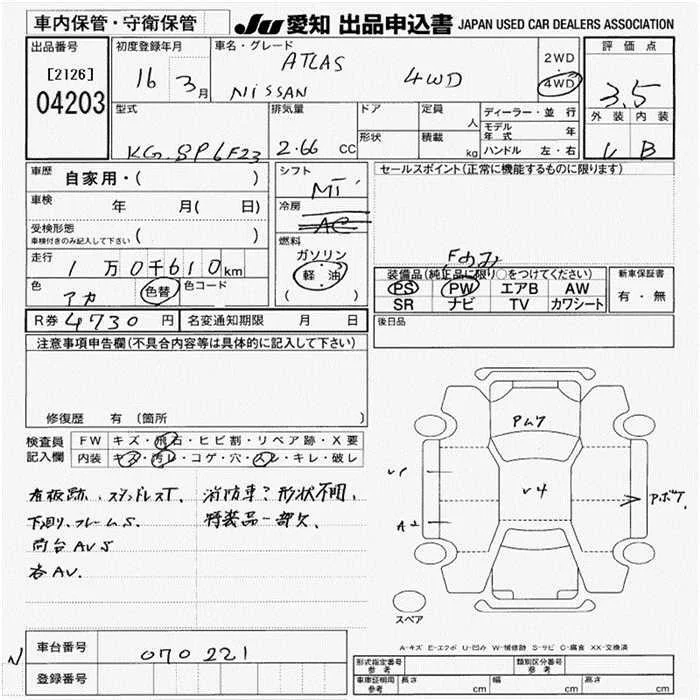 車内保管・守衛保管
JU 愛知 出品申込書 JAPAN USED CAR DEALERS ASSOCIATION
出品番号
[2126]
04203
初度登録年月
16 3月
車名・グレード
ATLAS 4WD
NISSAN
2WD
・
4WD
評価点
3.5
外装 内装
B
型式
KG-SP6F23
排気量
2.66 CC
ドア
形状
定員 人
積載 kg
ディーラー・並行
モデル年式 年
ハンドル 左・右
車歴 自家用・( )
車検 年 月( 日)
受検形態
車検付きのみ記入して下さい ( )
走行 1万0千610km
色 アカ 色替 色コード
シフト
MT
冷房
AC
燃料
ガソリン
軽・油
( )
セールスポイント(正常に機能するものに限ります)
装備品(純正品に限り○をつけてください)
PS PW エアB AW
SR ナビ TV カワシート
新車保証書
有・無
R券 4730円 名変通知期限 月 日
後日品
注意事項申告欄(不具合内容等は具体的に記入して下さい)
修復歴 有 〔箇所 〕
検査員記入欄
FW キズ・飛石・ヒビ割・リペア跡・X要
内装 キズ・汚レ・コゲ・穴・スレ・キレ・破レ
看板跡、スタンドレスT、消防車?形状不明、
下回り、フレームS、特装品一部欠、
荷台AVS
各AV.
PムY
V4
A2
スペア
A-キズ E-エクボ U-凹み W-補修跡 S-サビ C-腐食 XX-交換済
N
車台番号 070221
登録番号
形式指定番号
参考
類別区分番号
参考
車庫証明用
参考
長さ cm 幅 cm 高さ cm